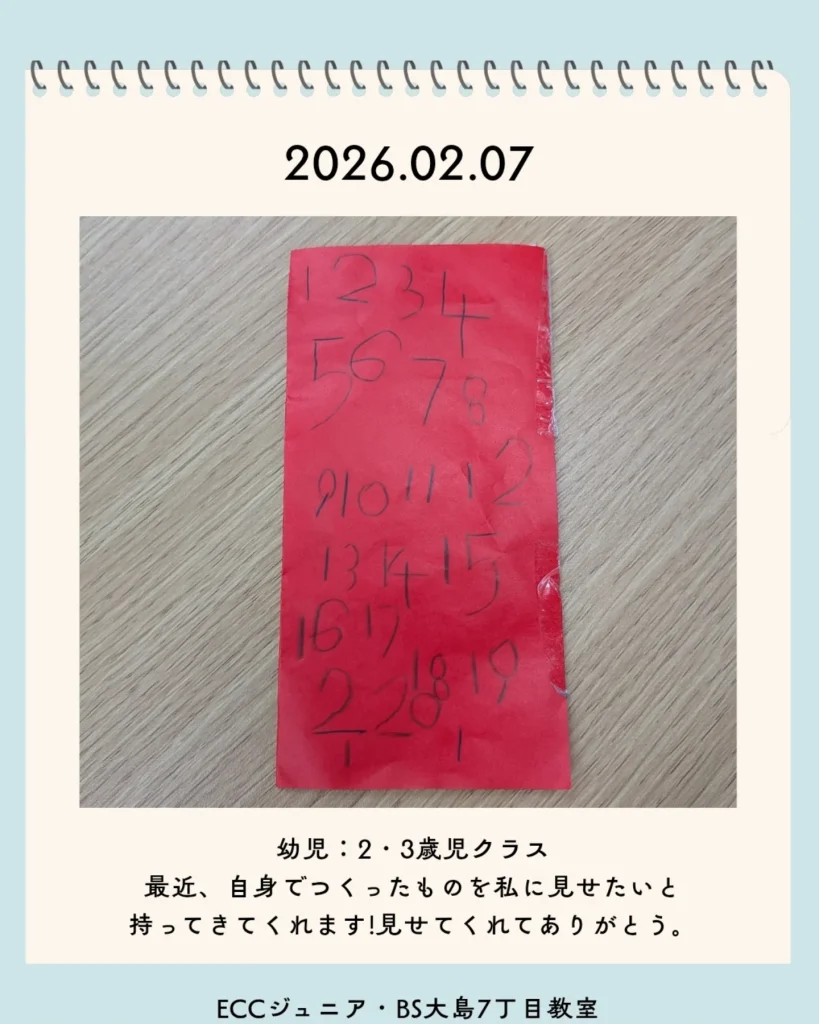 2026.02.07
1 2 3 4
5 6 7 8
9 10 11 12
13 14 15
16 17
18 19
2 20
1 1
幼児：2・3歳児クラス
最近、自身でつくったものを私に見せたいと
持ってきてくれます!見せてくれてありがとう。
ECCジュニア・BS大島7丁目教室